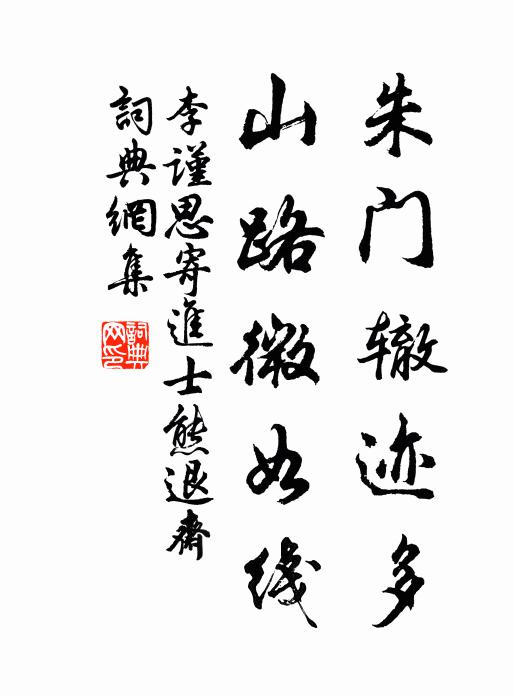 朱门辙迹多
山路微如线
李謹思寄進士熊退齋
詞典網集
詞典网印